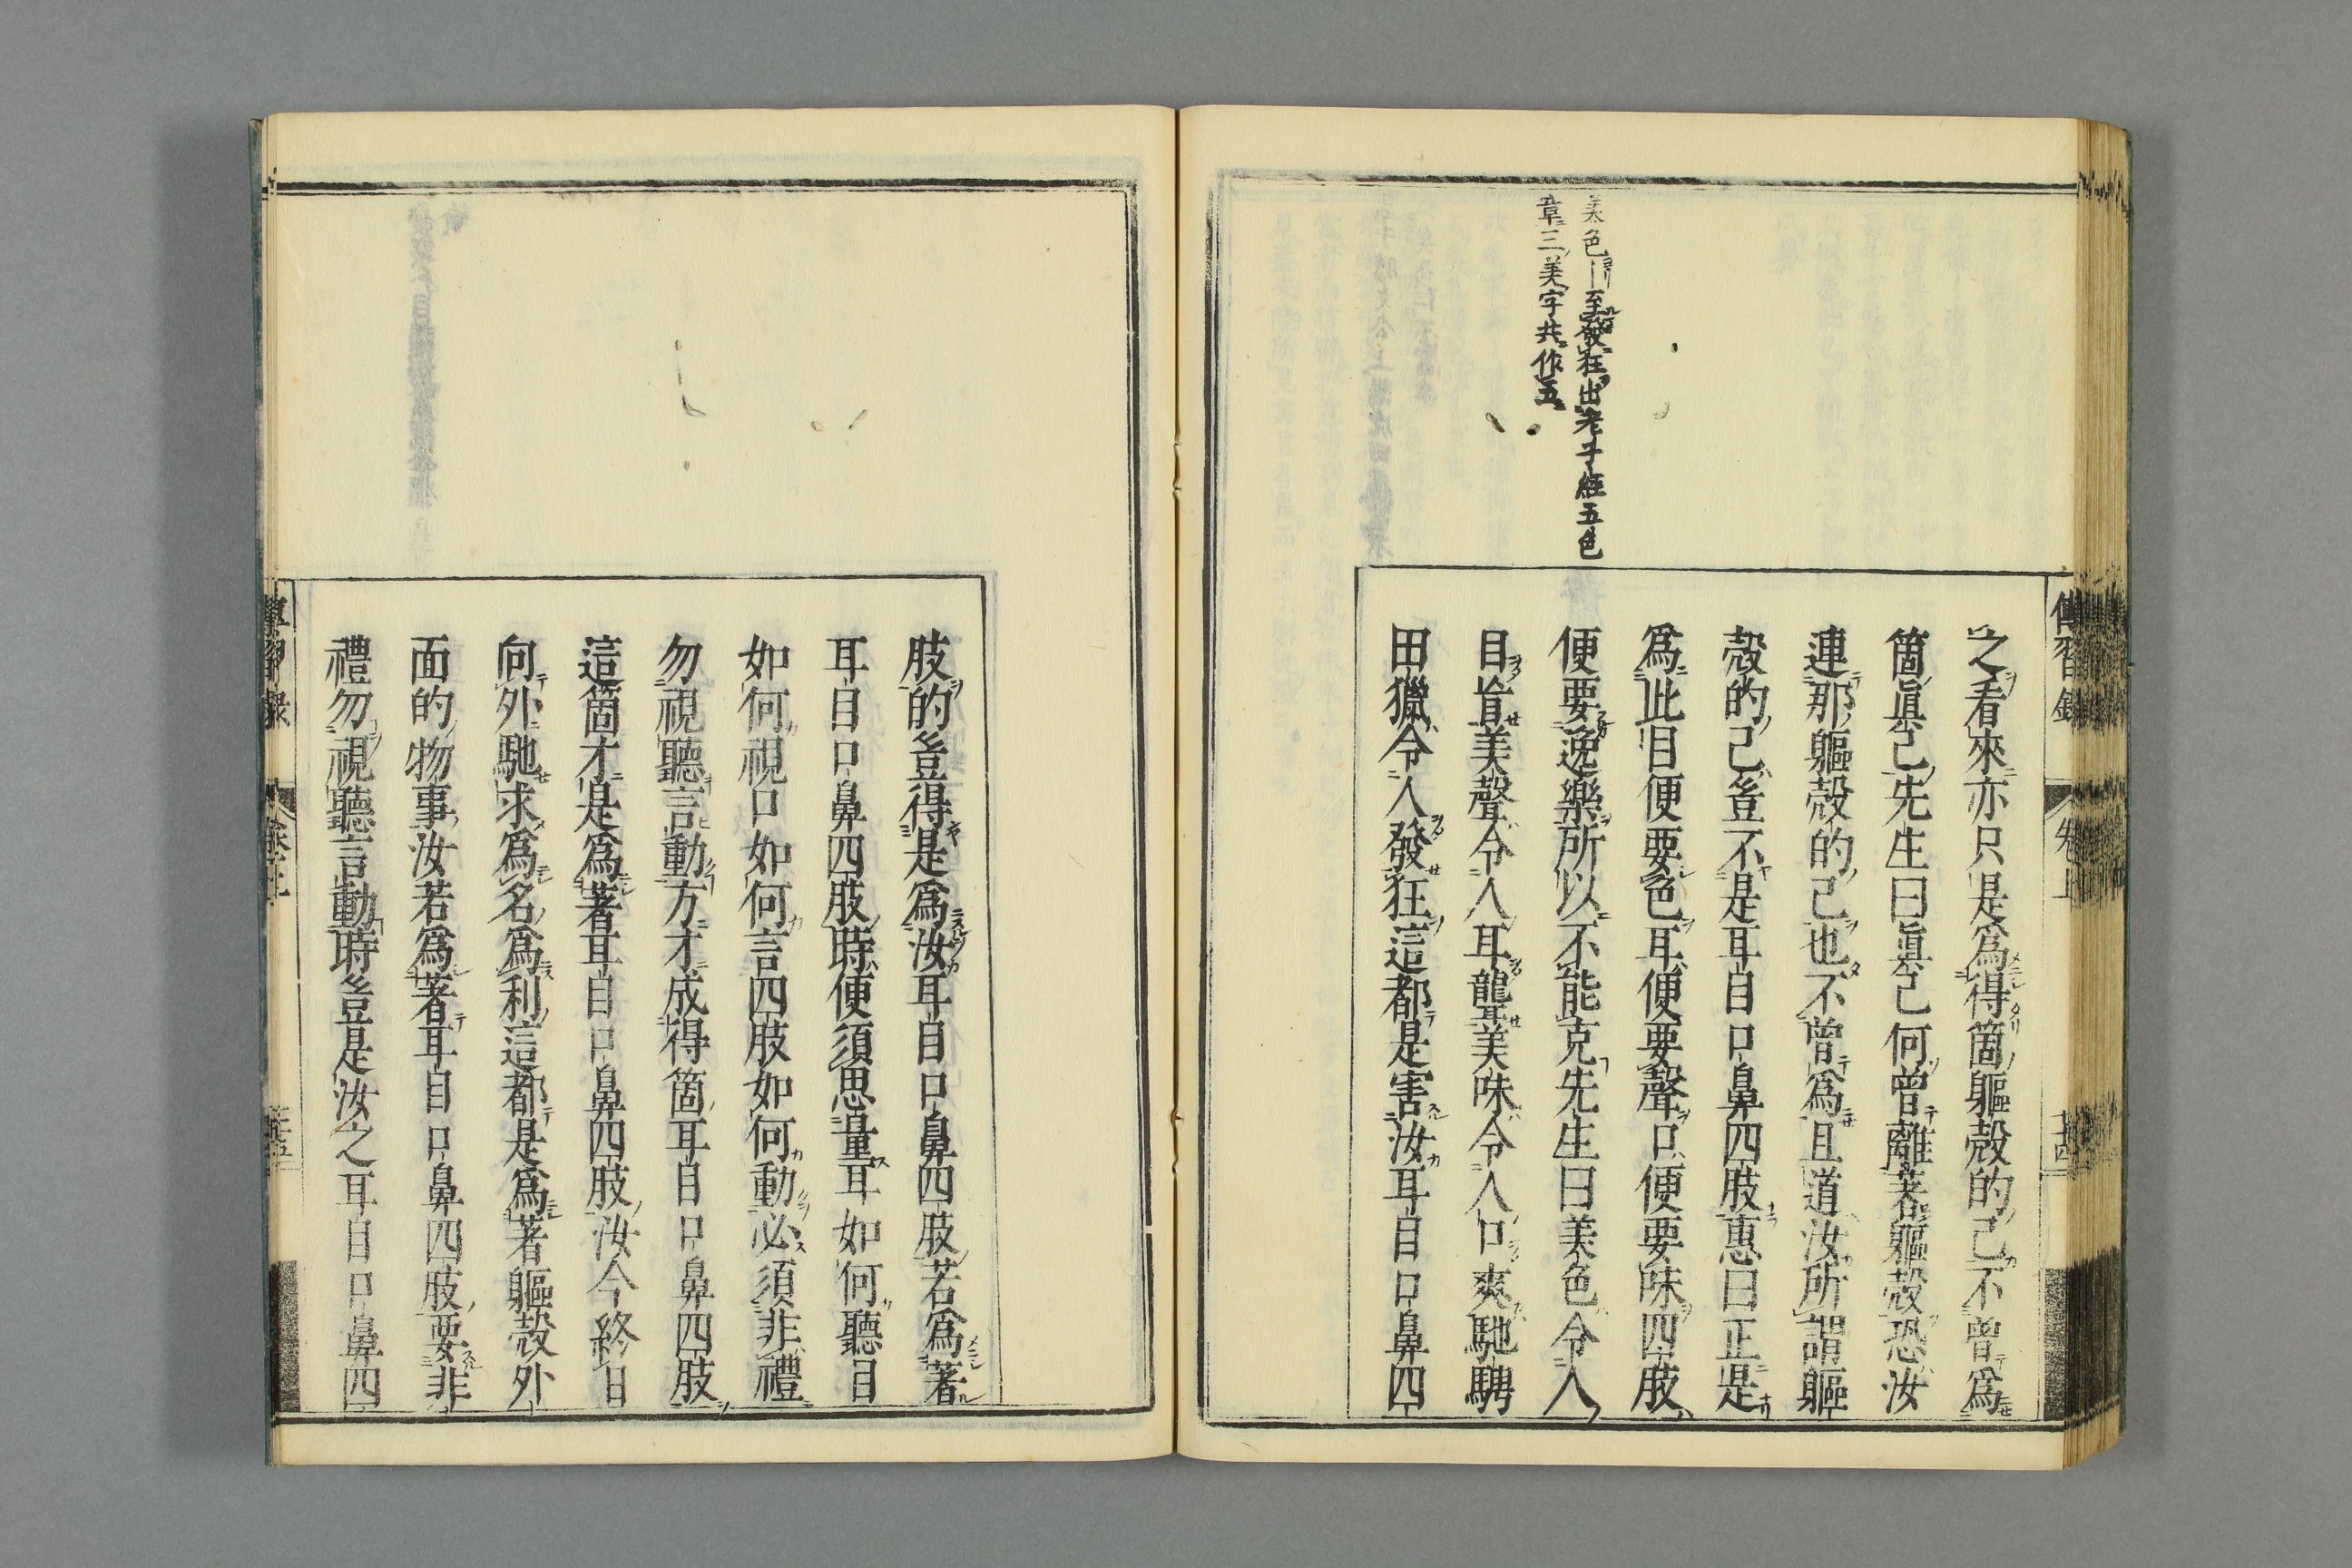 傳習錄
卷上
美色ヨリ至發狂出老子經五色
章三美字共作五
之看來亦只是爲得箇軀殼的己不曾爲
箇眞己先生曰眞己何曾離著軀殼恐汝
連那軀殼的己也不曾爲且道汝所謂軀
殼的己豈不是耳目口鼻四肢惠曰正是
爲此目便要色耳便要聲口便要味四肢
便要逸樂所以不能克先生曰美色令人
目盲美聲令人耳聾美味令人口爽馳騁
田獵令人發狂這都是害汝耳目口鼻四
肢的豈得是爲汝耳目口鼻四肢若爲著
耳目口鼻四肢時便須思量耳如何聽目
如何視口如何言四肢如何動必須非禮
勿視聽言動方才成得箇耳目口鼻四肢
這箇才是爲著耳目口鼻四肢汝今終日
向外馳求爲名爲利這都是爲著軀殼外
面的物事汝若爲著耳目口鼻四肢要非
禮勿視聽言動時豈是汝之耳目口鼻四